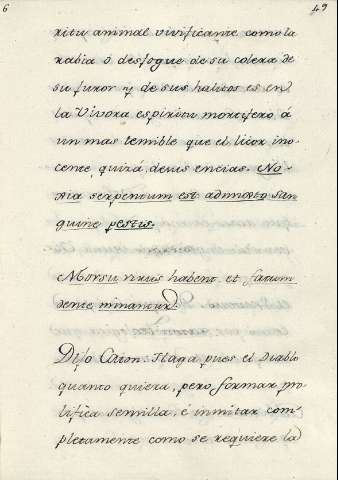 6 49
ritu animal vivificante como la
rabia ò desfogue de su colera de
su furor y de sus halitos es en
la Vivora espiritu mortifero á
un mas temible que el licor ino-
cente quizá de sus encias. No-
xia serpentum est admixto san
guine pestis.
Morsu virus habent et fatum
dente minantur.
Dijo Caton: Haga pues el Diablo
quanto quiera, pero formar pro
lifica semilla, é inmitar com-
pletamente como se requiere la